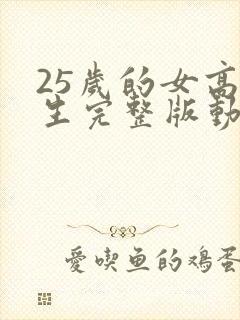 25歲的女高
生完整版動
愛喫魚的鸡蛋